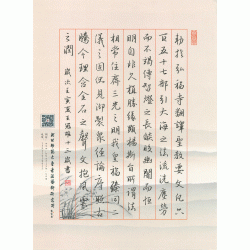 勅於弘福寺翻譯聖教要文凡六
百五十七部引大海之法流洗塵勞
而不竭傳智燈之長焰皎幽闇而恒
明自非久植勝緣何以顯揚斯旨所謂法
相常住齊三光之明我皇福臻同二
儀之固伏見御製眾經論序照古
騰今理含金石之聲文抱風雲
之潤 歲次壬寅 十二歲書